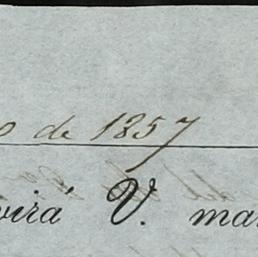 o de 1857
virá V. mar